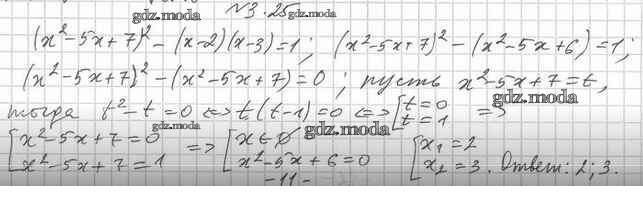 gdz.moda
№3.25 gdz.moda
(x²-5x+7)² - (x-2)(x-3)=1; (x²-5x+7)² - (x²-5x+6)=1;
(x²-5x+7)² - (x²-5x+7)=0; пусть x²-5x+7=t,
gdz.moda
тогда t²-t=0 <=> t(t-1)=0 <=> [t=0 t=1 =>
gdz.moda gdz.moda
[x²-5x+7=0 x²-5x+7=1 => [x∈∅ x²-5x+6=0 [x₁=2 x₂=3. Ответ: 2; 3.
-11-